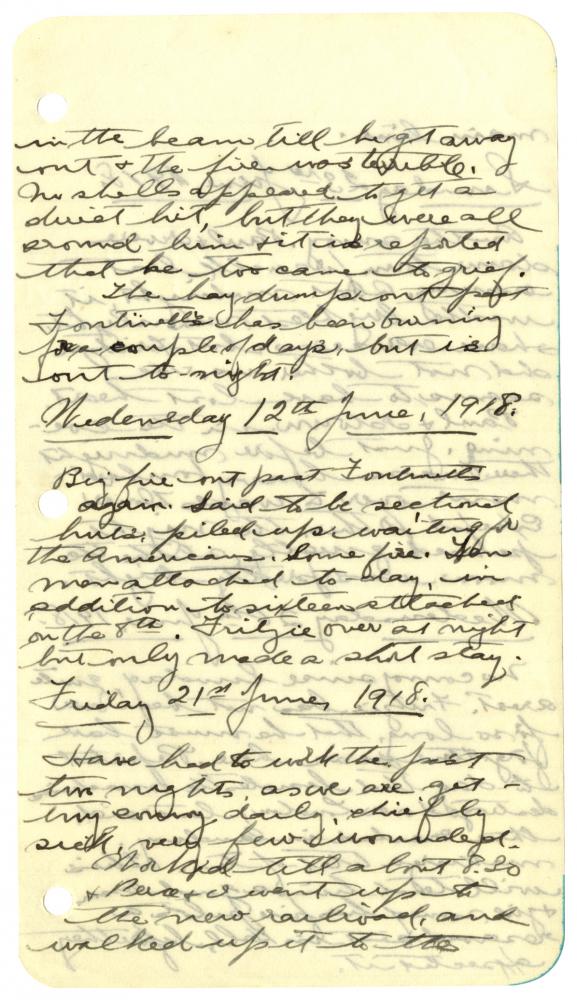 in the beam till he got away
out & the fire was terrible.
No shells appeared to get a
direct hit, but they were all
around him & it is reported
that he too came to grief.
The hay dump out past
Fontinetts has been burning
for a couple of days, but is
out to-night.
Wednesday 12th June, 1918.
Big fire out past Fontinetts
again. Said to be sectional
huts, piled up waiting for
the Americans. Some fire. Ten
men attached to-day, in
addition to sixteen attached
on the 8th. Fritzie over at night
but only made a short stay.
Friday 21st June, 1918.
Have had to work the past
two nights, as we are get-
ting convoy daily, chiefly
sick, very few wounded.
Worked till about 8.30
& I went up to
the new railroad, and
walked up it to the